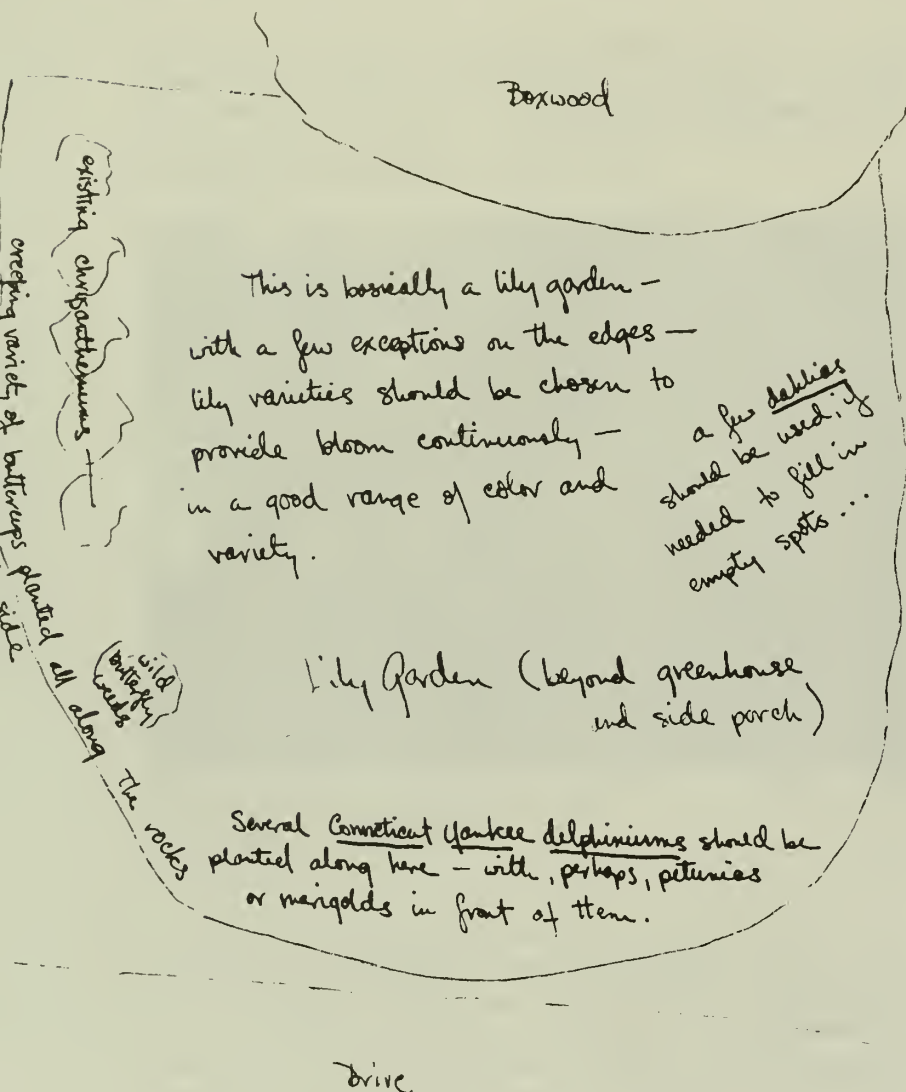 Boxwood
existing chrysanthemums
creeping variety of buttercups planted all along the rocks
side
This is basically a lily garden —
with a few exceptions on the edges —
lily varieties should be chosen to
provide bloom continuously —
in a good range of color and
variety.
a few dahlias
should be used, if
needed to fill in
empty spots ...
wild
butterfly
weeds
Lily Garden (beyond greenhouse
and side porch)
Several Connecticut Yankee delphiniums should be
planted along here — with, perhaps, petunias
or marigolds in front of them.
Drive